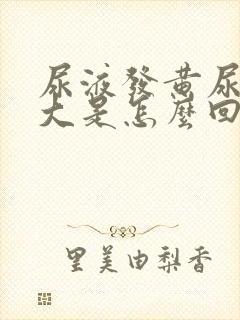 尿液發黃尿
大是怎麼回
里美由梨香